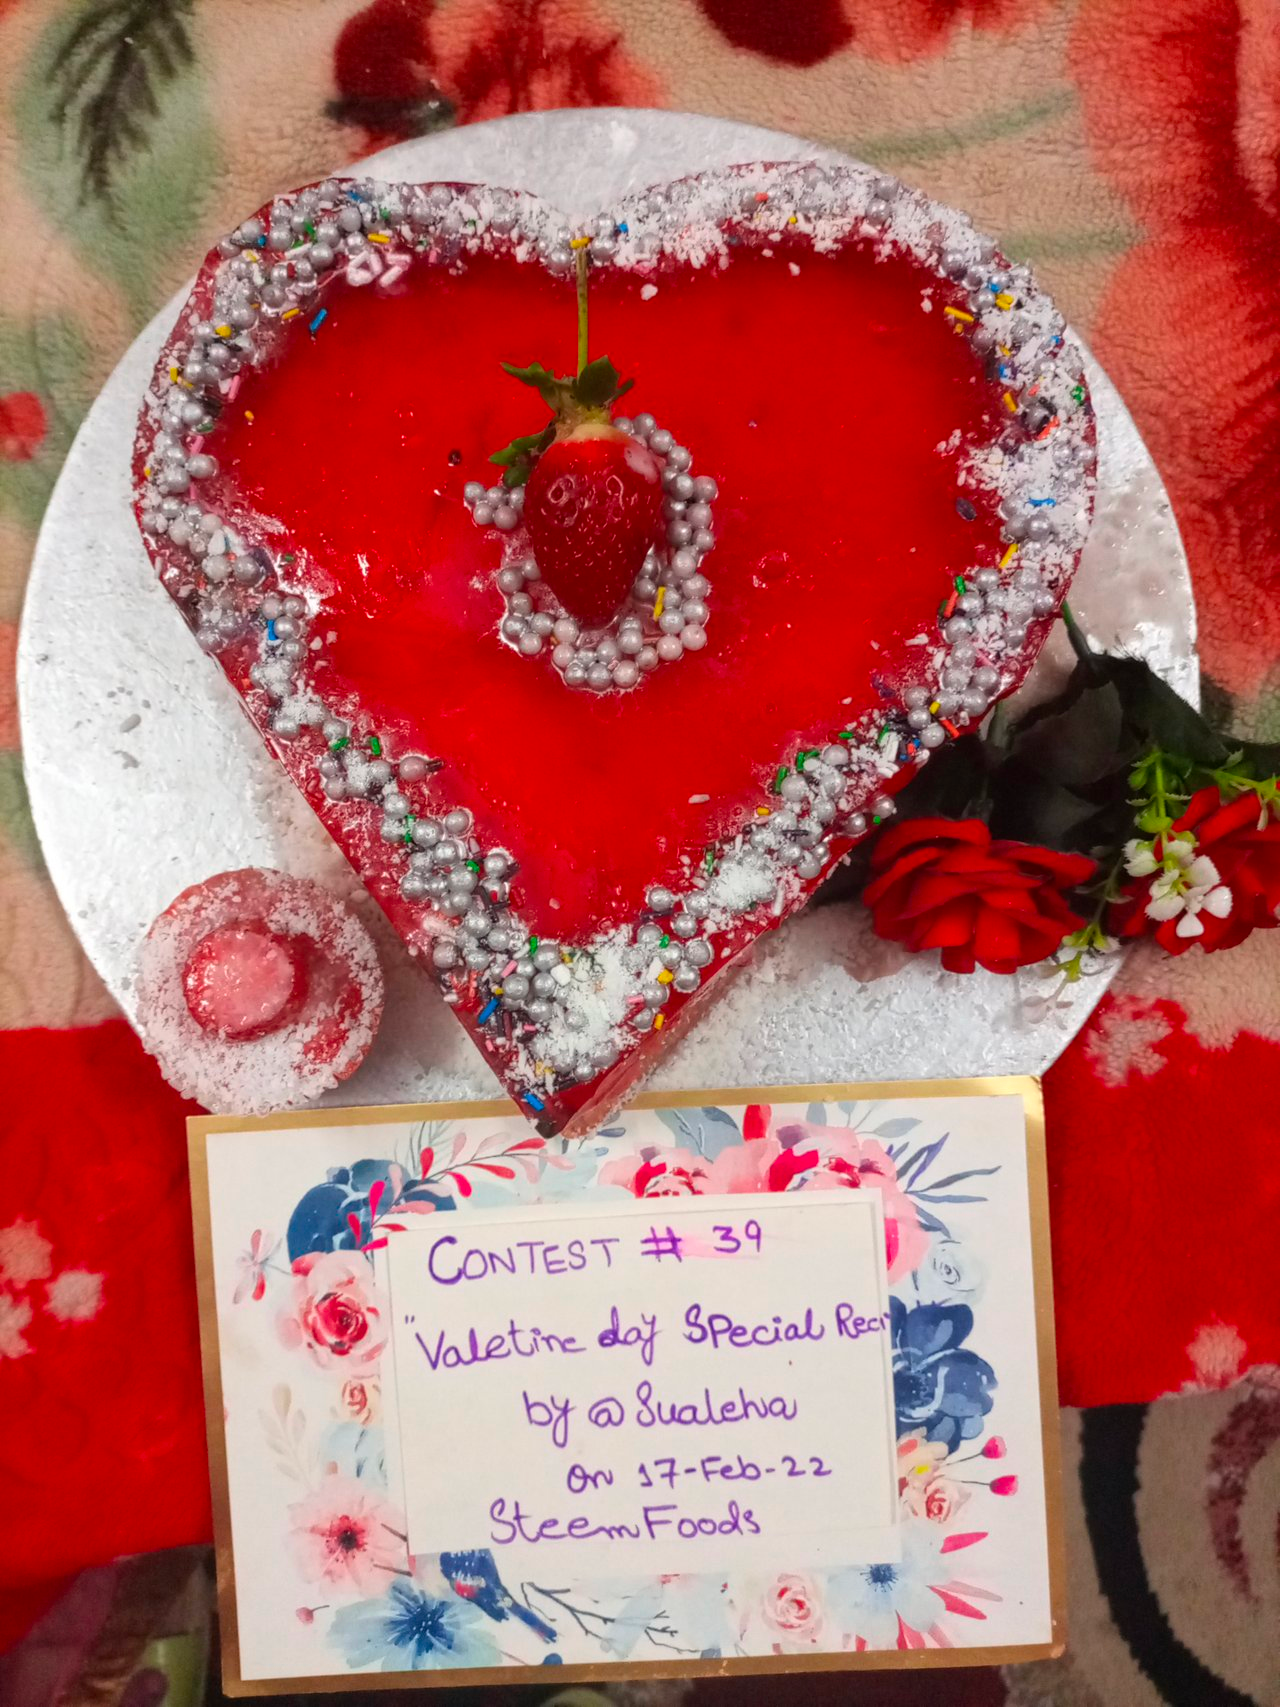 CONTEST # 39
"Valetine day Special Reci
by @Sualeha
on 17-Feb-22
Steem Foods